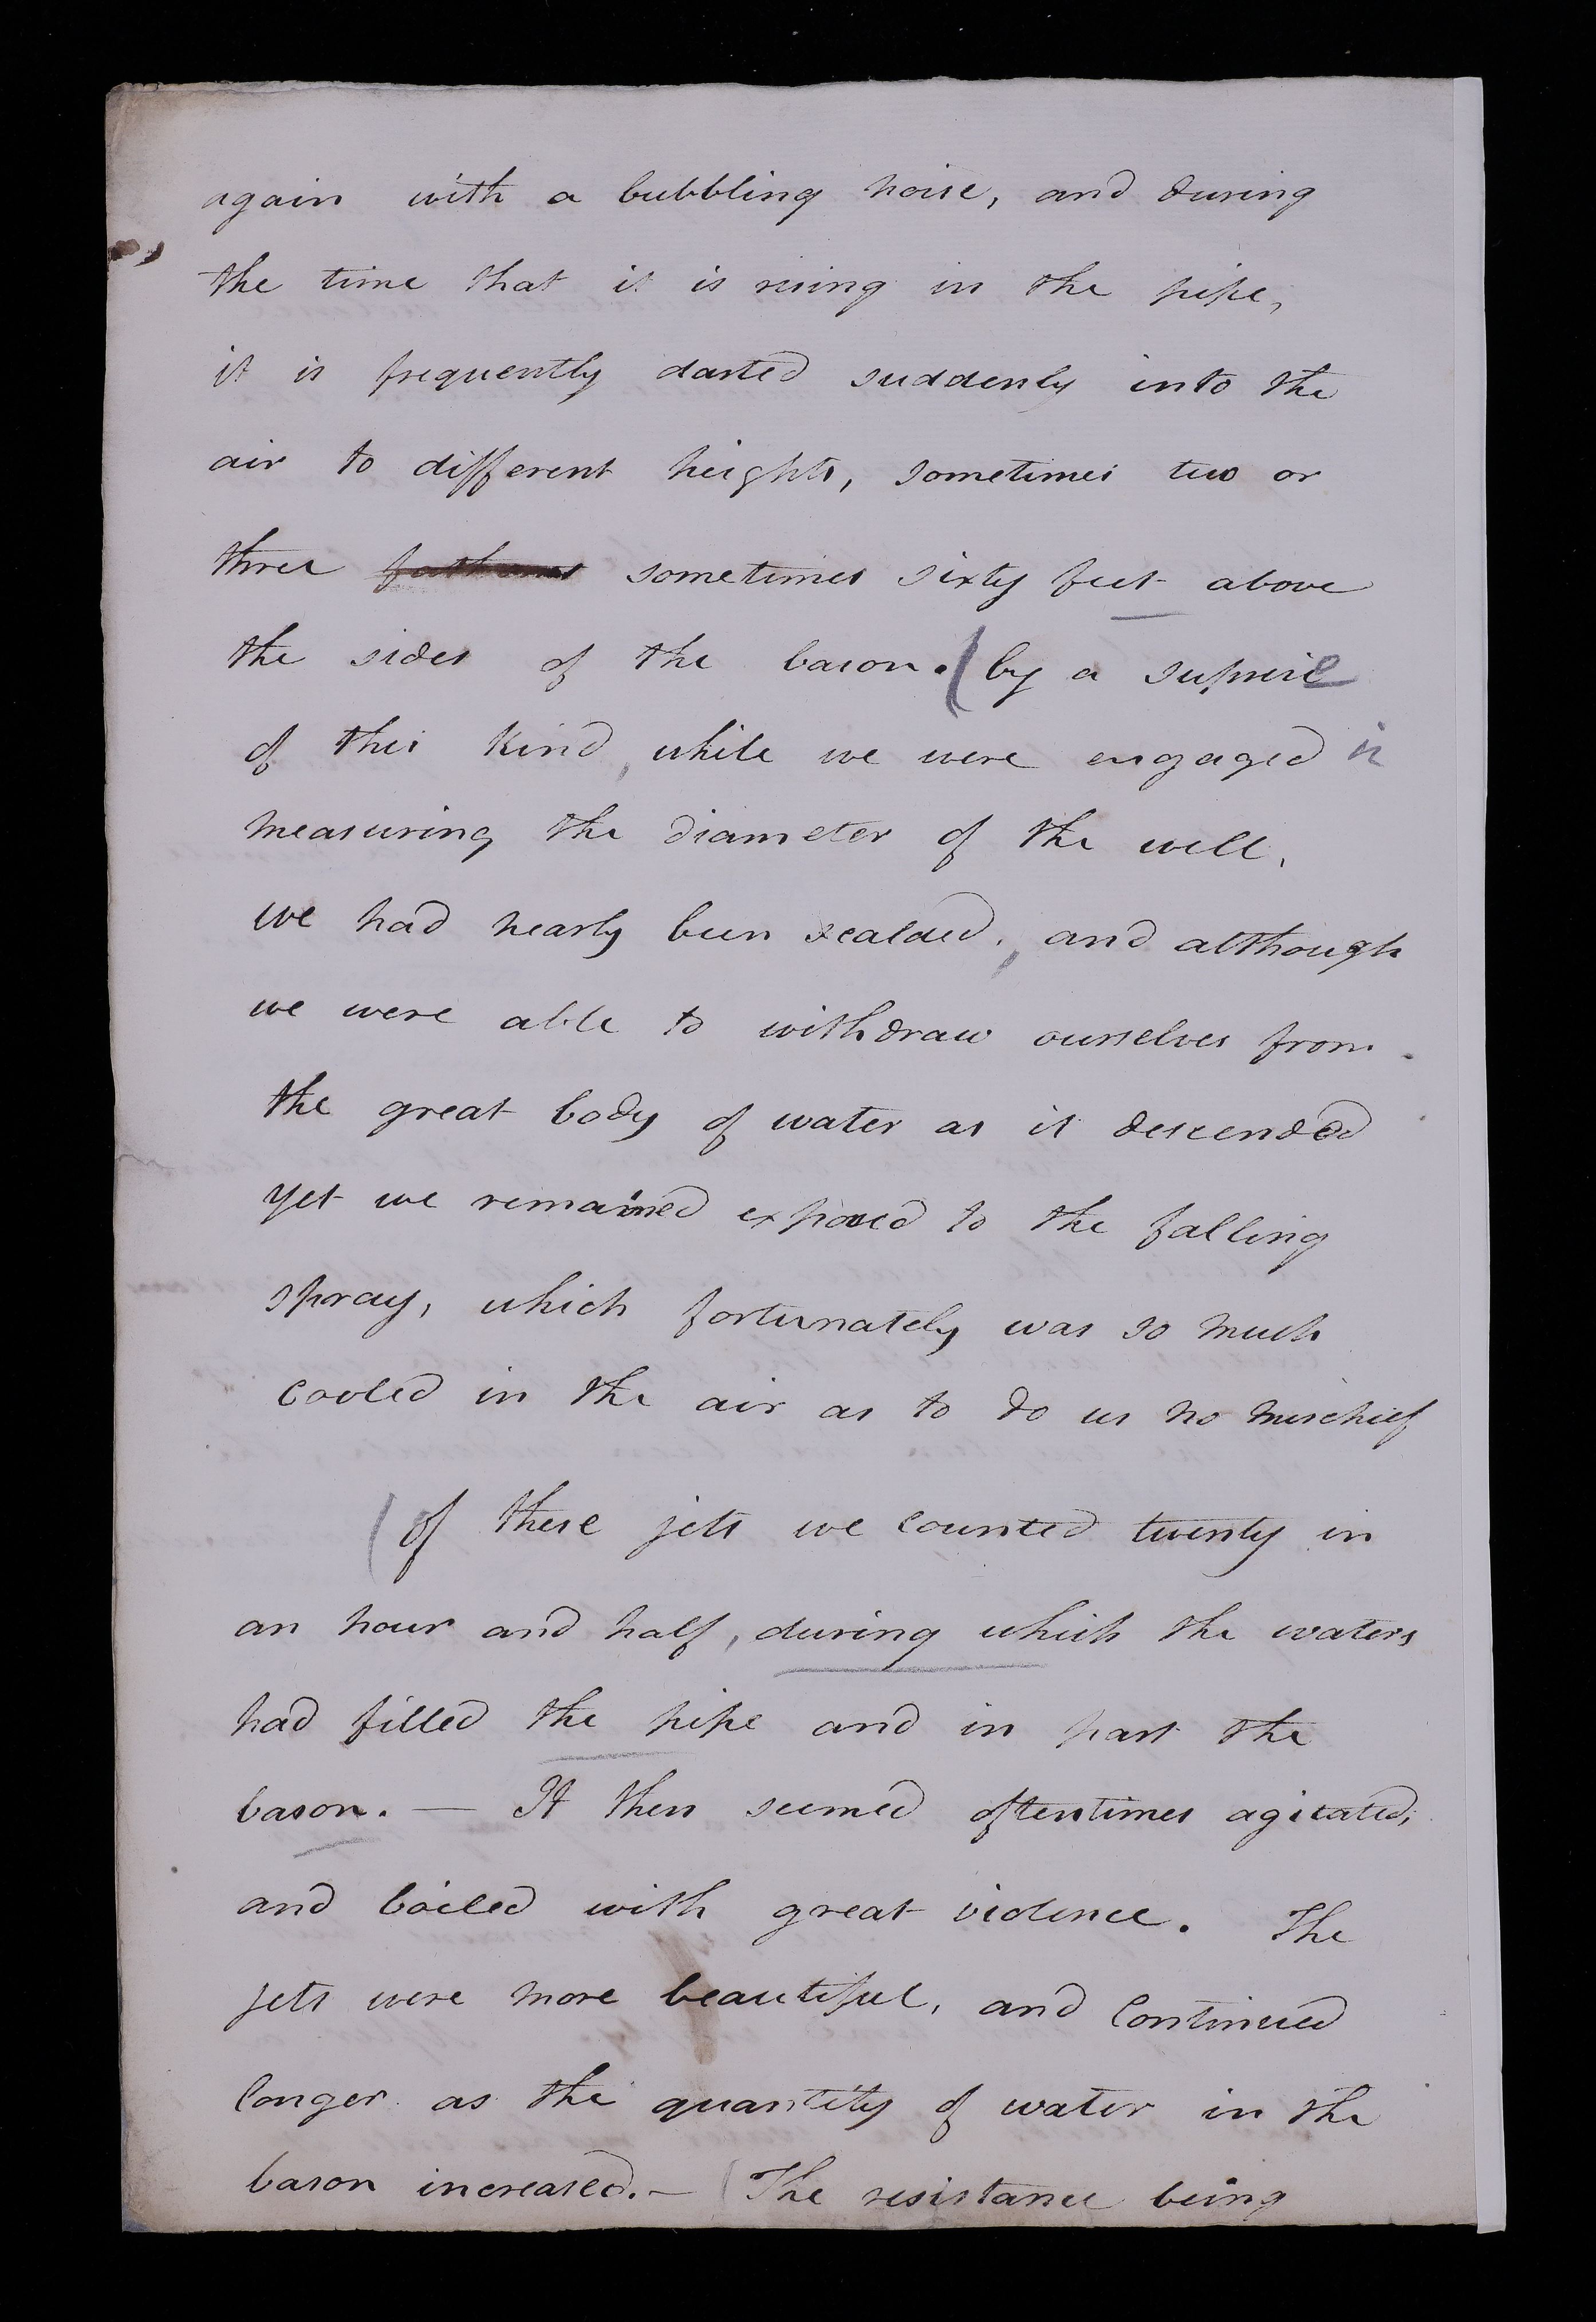 again with a bubbling noise, and during
the time that it is rising in the pipe,
it is frequently darted suddenly into the
air to different heights, sometimes two or
three fathoms sometimes sixty feet above
the sides of the bason. (by a suprise
of this kind, while we were engaged in
measuring the diameter of the well,
we had nearly been scalded, and although
we were able to withdraw ourselves from
the great body of water as it descended
yet we remained exposed to the falling
spray, which fortunately was so much
cooled in the air as to do us no mischief
(of these jets we counted twenty in
an hour and half, during which the waters
had filled the pipe and in part the
bason. — It then seemed oftentimes agitated,
and boiled with great violence. The
jets were more beautiful, and continued
longer as the quantity of water in the
bason increased. — (The resistance being